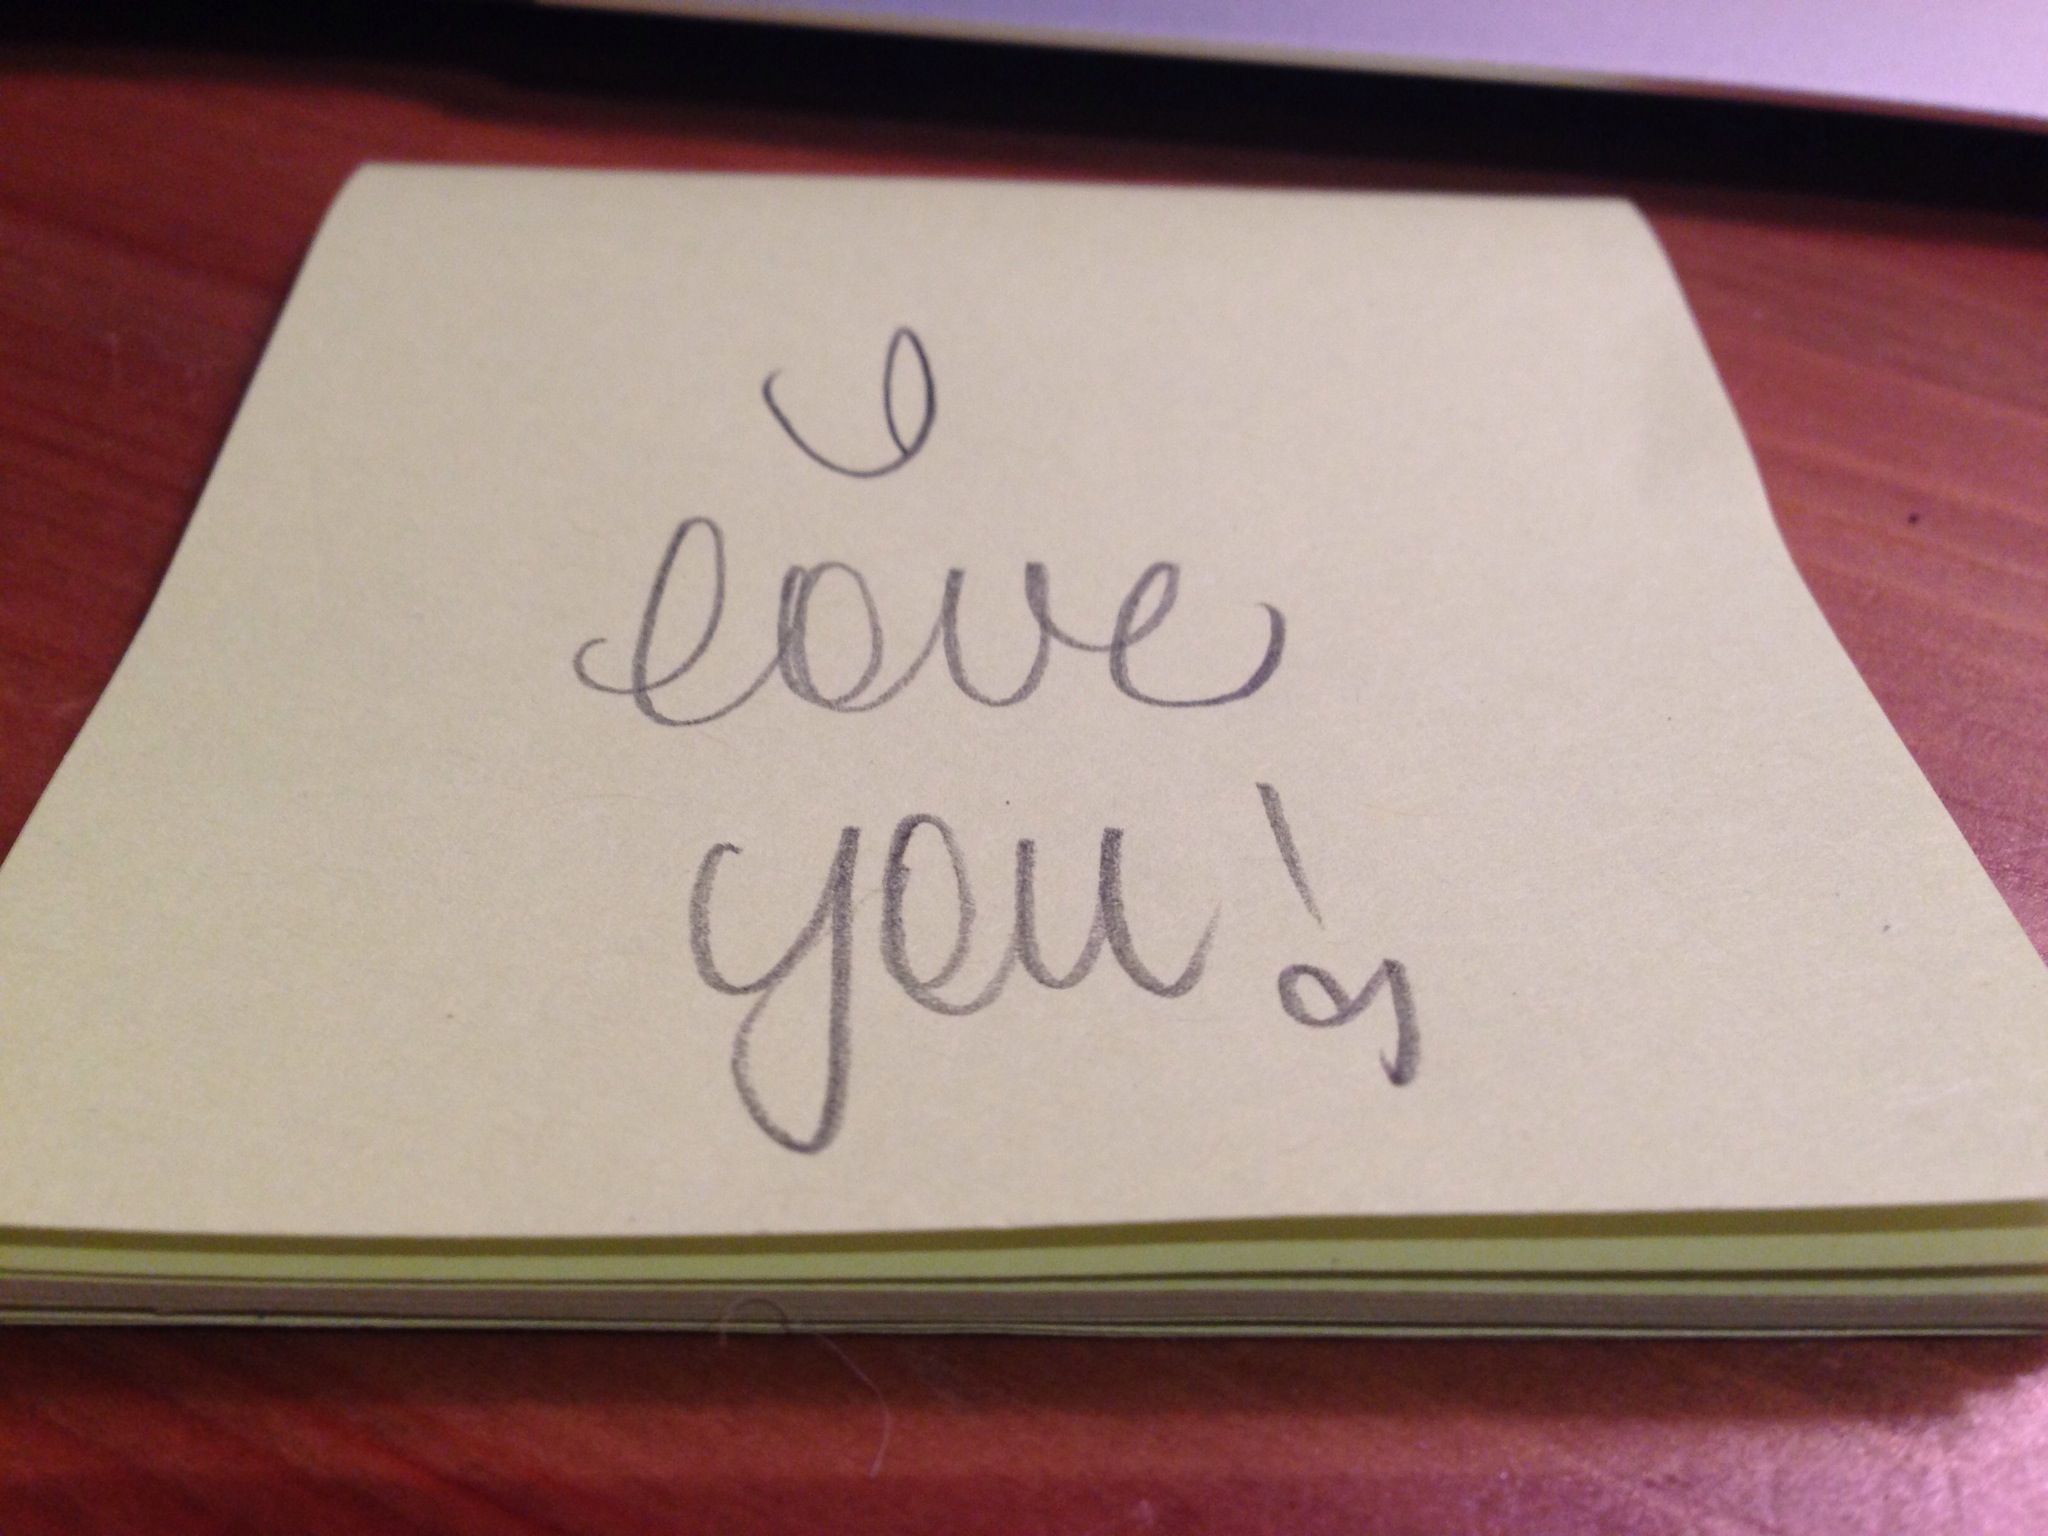 I
love
you!